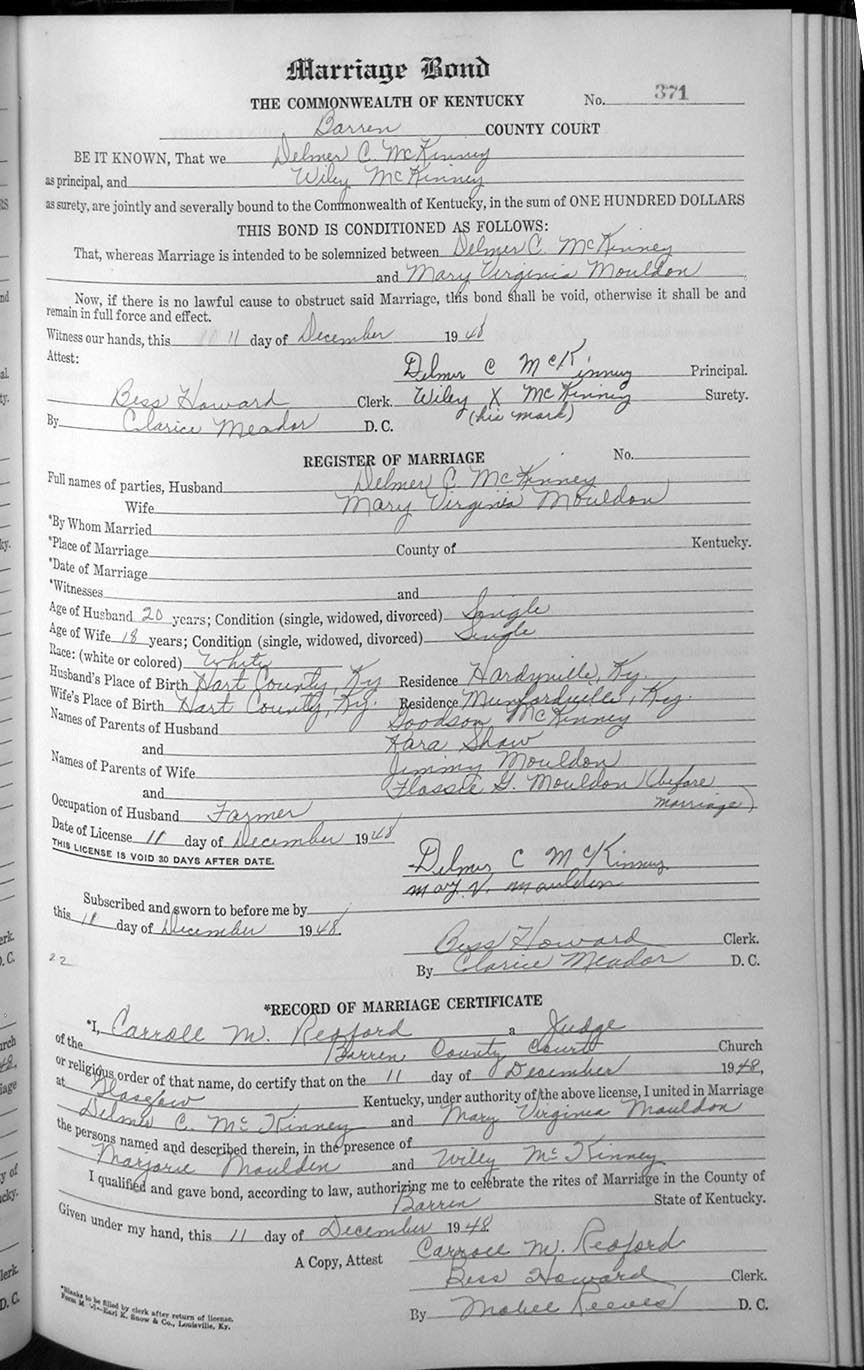 Marriage Bond
THE COMMONWEALTH OF KENTUCKY No. 371
Barren COUNTY COURT
BE IT KNOWN, That we Delmer C. McKinney
as principal, and Wiley McKinney
as surety, are jointly and severally bound to the Commonwealth of Kentucky, in the sum of ONE HUNDRED DOLLARS
THIS BOND IS CONDITIONED AS FOLLOWS:
That, whereas Marriage is intended to be solemnized between Delmer C. McKinney
and Mary Virginia Mouldon
Now, if there is no lawful cause to obstruct said Marriage, this bond shall be void, otherwise it shall be and
remain in full force and effect.
Witness our hands, this 11 day of December 1948
Attest:
Delmer C McKinney Principal.
Bess Howard Clerk. Wiley X McKinney Surety.
By Clarice Meador D. C. (his mark)
REGISTER OF MARRIAGE No.
Full names of parties, Husband Delmer C. McKinney
Wife Mary Virginia Mouldon
*By Whom Married
*Place of Marriage County of Kentucky.
*Date of Marriage
*Witnesses and
Age of Husband 20 years; Condition (single, widowed, divorced) Single
Age of Wife 18 years; Condition (single, widowed, divorced) Single
Race: (white or colored) White
Husband's Place of Birth Hart County, Ky Residence Hardyville, Ky.
Wife's Place of Birth Hart County, Ky. Residence Munfordville, Ky.
Names of Parents of Husband Goodson McKinney
and Kara Shaw
Names of Parents of Wife Jimmy Mouldon
and Flossie G. Mouldon (before
marriage)
Occupation of Husband Farmer
Date of License 11 day of December 1948
THIS LICENSE IS VOID 30 DAYS AFTER DATE.
Delmer C McKinney
Mary V. Mouldon
Subscribed and sworn to before me by
this 11 day of December 1948.
Bess Howard Clerk.
22
By Clarice Meador D. C.
*RECORD OF MARRIAGE CERTIFICATE
*I, Carroll M. Redford a Judge
of the Barren County Court Church
or religious order of that name, do certify that on the 11 day of December 1948,
at Glasgow, Kentucky, under authority of the above license, I united in Marriage
Delmer C. McKinney and Mary Virginia Mouldon
the persons named and described therein, in the presence of
Marjorie Moulden and Wiley McKinney
I qualified and gave bond, according to law, authorizing me to celebrate the rites of Marriage in the County of
Barren State of Kentucky.
Given under my hand, this 11 day of December 1948.
A Copy, Attest Carroll M. Redford
Bess Howard Clerk.
*Blanks to be filled by clerk after return of license.
By Mabel Reeves D. C.
Earl K. Snow & Co., Louisville, Ky.